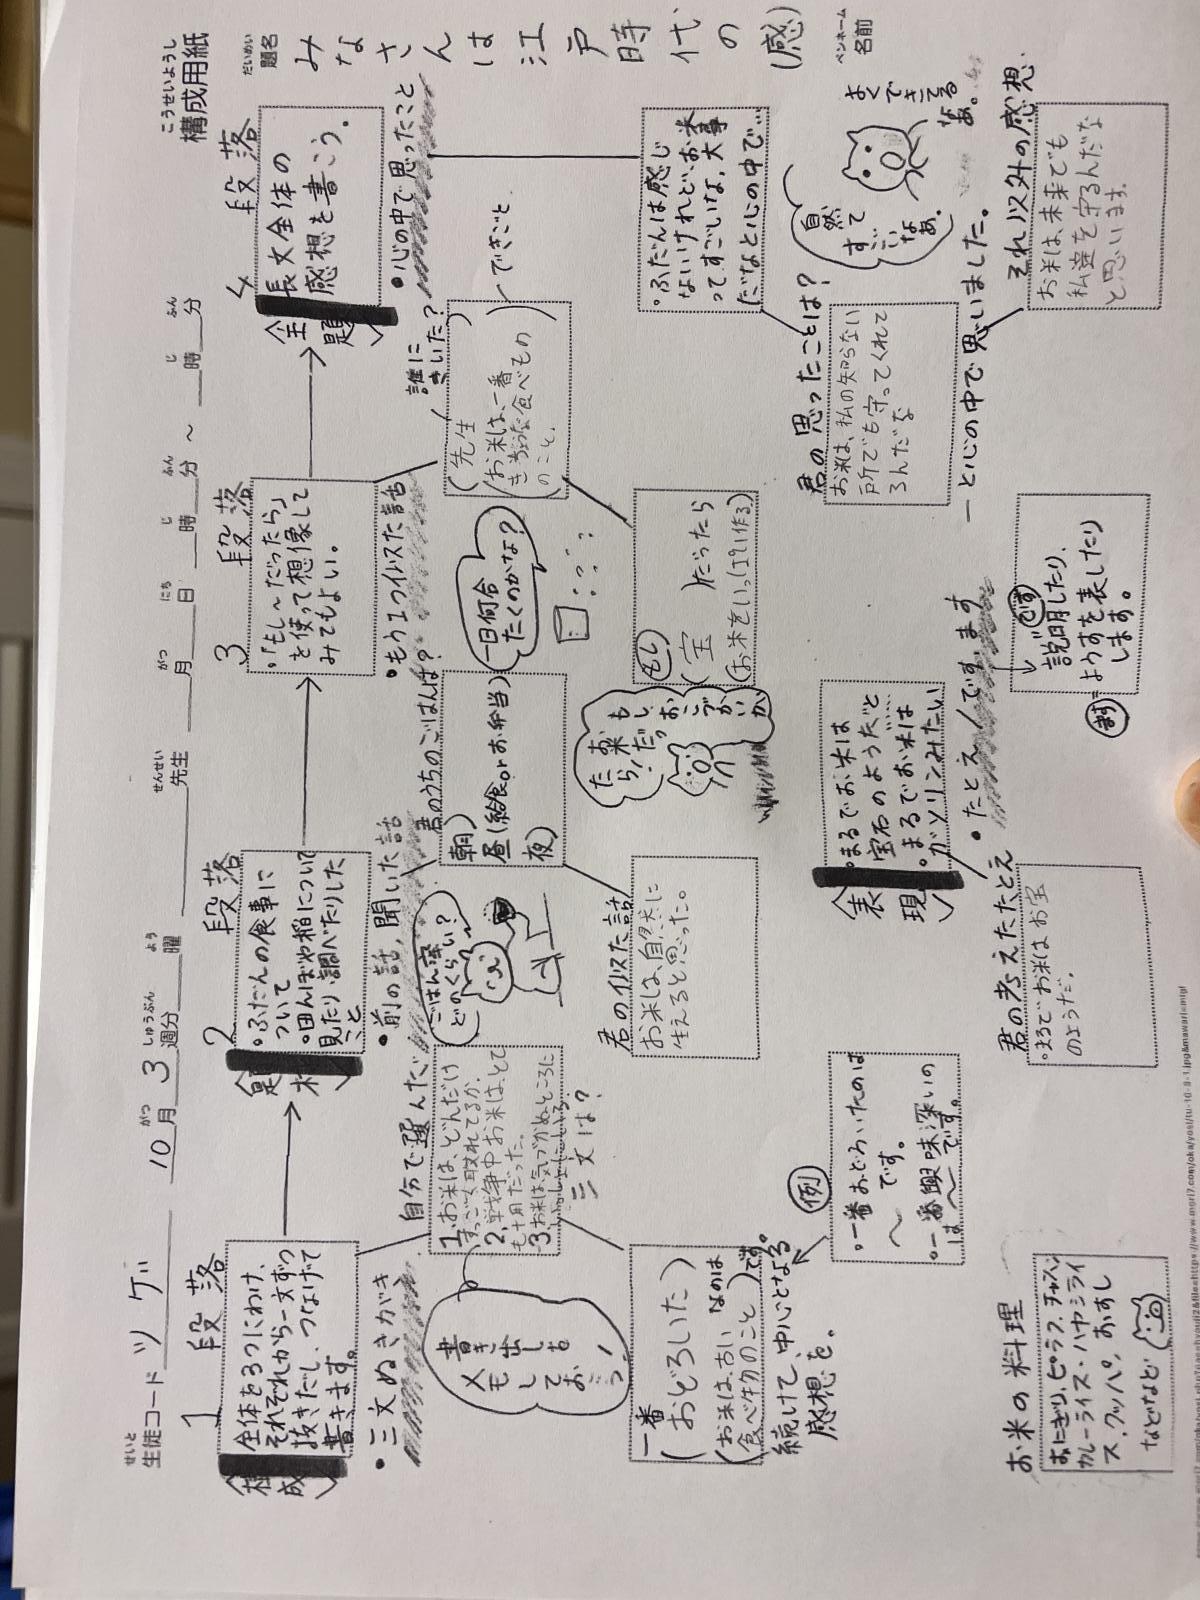 こうせいようし
構成用紙
せいと
生徒コード ツゲ
がつ しゅうぶん よう
10月3週分 曜
せんせい
先生
がつ にち じ ふん じ ふん
月 日 時 分 ~ 時 分
だいめい
題名
みなさんは江戸時代の(感)
ペンネーム
名前
1 段落
〈構成〉
全体を3つにわけ、
それぞれから一文ずつ
抜きだし、つなげて
書きます。
・三文ぬきがき
自分で選んだ
三文は?
1.お米は、どんだけ
すっごく取れてるか、
2.戦争中お米は、とて
も十月だった。
3.お米は気づかぬところに
書き出しも
メモ
して
お
こっ!
一番
(おどろいた)
(お米は、古い
食べ物のこと)
なのは
です。
続けて、中心となる
感想を。
例
・一番おどろいたのは
~です。
・一番興味深いの
は~です。
お米の料理
おにぎり、ピラフ、チャーハン
カレーライス・ハヤシライ
ス、クッパ、おすし
などなど
2 段落
〈題材〉
・ふだんの食事に
ついて
・田んぼや稲について
見たり、調べたりした
こと
・前の話、聞いた話
君のうちのごはんは?
朝)
昼(給食orお弁当)
夜)
ごはん家
どのくらい?
君の似た話
お米は、自然に
生えると思った。
〈表現〉
・まるでお米は
宝石のようだ と
・まるでお米は
ガソリンみたい
・たとえ/です、ます
君の考えたたとえ
・まるでお米はお宝
のようだ。
です
説明したり、
ます=ようすを表したり
します。
3 段落
・「もし~だったら」
を使って想像して
みてもよい。
・もう1つ似た話
誰に
きいた?
(先生)
(お米は、一番
きちょうな食べもの
のこと.)
できごと
一日何合
たくのかな?
もし
(宝)だったら
(お米をいっぱい作る)
もし
おこづかいが
お米だっ
たら!
4 段落
〈全題〉
長文全体の
感想を書こう.
・心の中で思ったこと
・ふだんは感じ
ないけれど、お米
ってすごいな、大事
だなと心の中で…
君の思ったことは?
お米は、私の知らない
所でも守ってくれて
るんだな
―と心の中で思いました。
自然
って
すごい
なぁ.
よく
できてる
なぁ。
それ以外の感想.
お米は、未来でも
私達を守るんだな
と思います